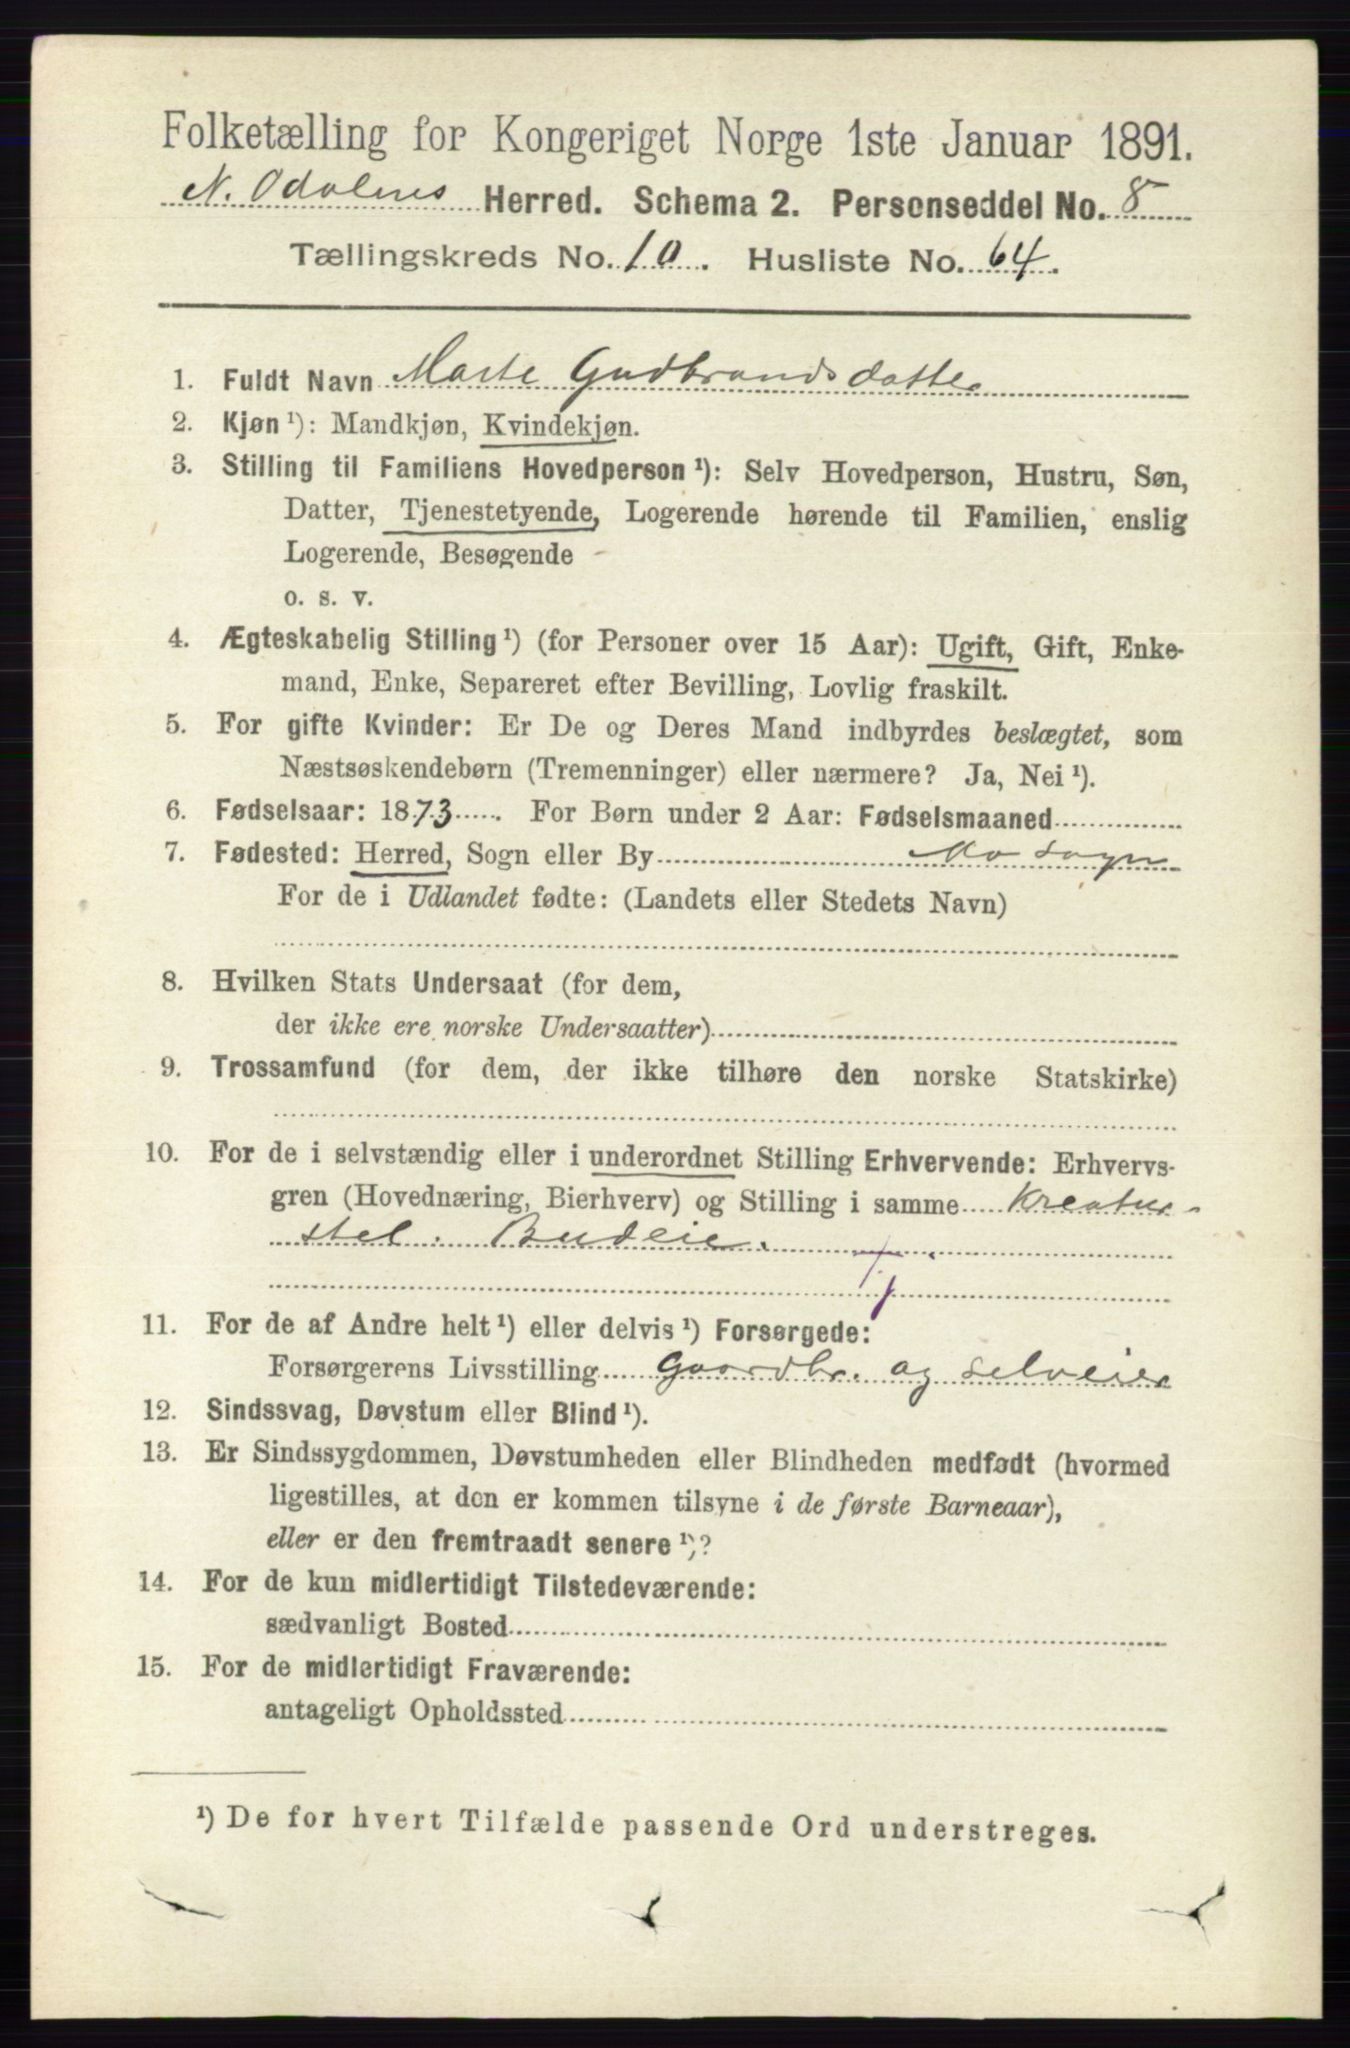 Folketælling for Kongeriget Norge 1ste Januar 1891.
N. Odalens Herred. Schema 2. Personseddel No. 8
Tællingskreds No. 10. Husliste No. 64.
1. Fuldt Navn Marte Gudbrandsdatter
2. Kjøn ¹): Mandkjøn, Kvindekjøn.
3. Stilling til Familiens Hovedperson ¹): Selv Hovedperson, Hustru, Søn,
Datter, Tjenestetyende, Logerende hørende til Familien, enslig
Logerende, Besøgende
o. s. v.
4. Ægteskabelig Stilling ¹) (for Personer over 15 Aar): Ugift, Gift, Enke-
mand, Enke, Separeret efter Bevilling, Lovlig fraskilt.
5. For gifte Kvinder: Er De og Deres Mand indbyrdes beslægtet, som
Næstsøskendebørn (Tremenninger) eller nærmere? Ja, Nei ¹).
6. Fødselsaar: 1873. For Børn under 2 Aar: Fødselsmaaned
7. Fødested: Herred, Sogn eller By Mo sogn
For de i Udlandet fødte: (Landets eller Stedets Navn)
8. Hvilken Stats Undersaat (for dem,
der ikke ere norske Undersaatter)
9. Trossamfund (for dem, der ikke tilhøre den norske Statskirke)
10. For de i selvstændig eller i underordnet Stilling Erhvervende: Erhvervs-
gren (Hovednæring, Bierhverv) og Stilling i samme Kreatur-
stel. Budeie.
11. For de af Andre helt ¹) eller delvis ¹) Forsørgede:
Forsørgerens Livsstilling Gaardbr. og selveier
12. Sindssvag, Døvstum eller Blind ¹).
13. Er Sindssygdommen, Døvstumheden eller Blindheden medfødt (hvormed
ligestilles, at den er kommen tilsyne i de første Barneaar),
eller er den fremtraadt senere ¹)?
14. For de kun midlertidigt Tilstedeværende:
sædvanligt Bosted
15. For de midlertidigt Fraværende:
antageligt Opholdssted
¹) De for hvert Tilfælde passende Ord understreges.